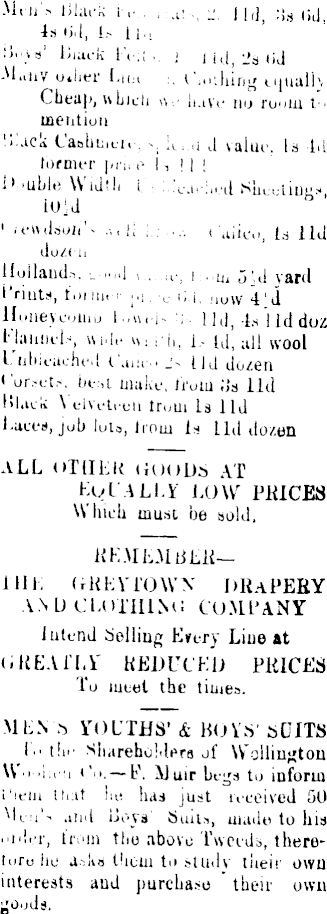 Men's Black Felt Hats, 2s 11d, 3s 6d,
4s 6d, 4s 11d
Boys' Black Felts, 11d, 2s 6d
Many other Lines in Clothing equally
Cheap, which we have no room to
mention
Black Cashmere, splendid value, 1s 4d
former price 1s 11d
Double Width Unbleached Sheetings,
10½d
Crewdson's well known Calico, 4s 11d
dozen
Hollands, good value, from 5½d yard
Prints, former price 6d, now 4½d
Honeycomb Towels 3s 11d, 4s 11d doz
Flannels, wide width, 1s 4d, all wool
Unbleached Calico 2s 11d dozen
Corsets, best make, from 3s 11d
Black Velveteen from 1s 11d
Laces, job lots, from 1s 11d dozen
ALL OTHER GOODS AT
EQUALLY LOW PRICES
Which must be sold.
REMEMBER—
THE GREYTOWN DRAPERY
AND CLOTHING COMPANY
Intend Selling Every Line at
GREATLY REDUCED PRICES
To meet the times.
MEN'S YOUTHS' & BOYS' SUITS
To the Shareholders of Wellington
Woollen Co.—F. Muir begs to inform
them that he has just received 50
Men's and Boys' Suits, made to his
order, from the above Tweeds, there-
fore he asks them to study their own
interests and purchase their own
goods.